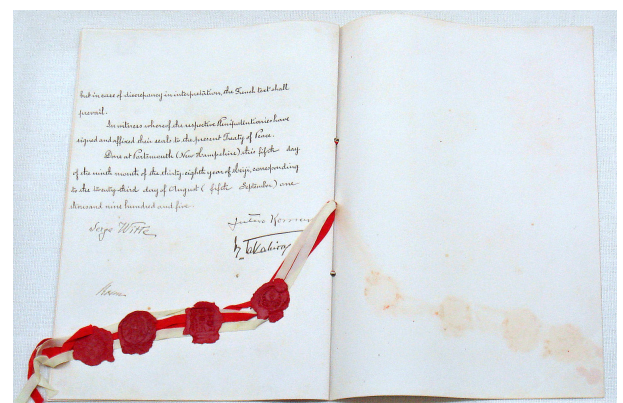 but in case of discrepancy in interpretation, the French text shall
prevail.
In witness whereof, the respective Plenipotentiaries have
signed and affixed their seals to the present Treaty of Peace.
Done at Portsmouth (New Hampshire) this fifth day
of the ninth month of the thirty-eighth year of Meiji, corresponding
to the twenty-third day of August (fifth September) one
thousand nine hundred and five.
Serge Witte
Jutaro Komura
K. Takahira
Rosen